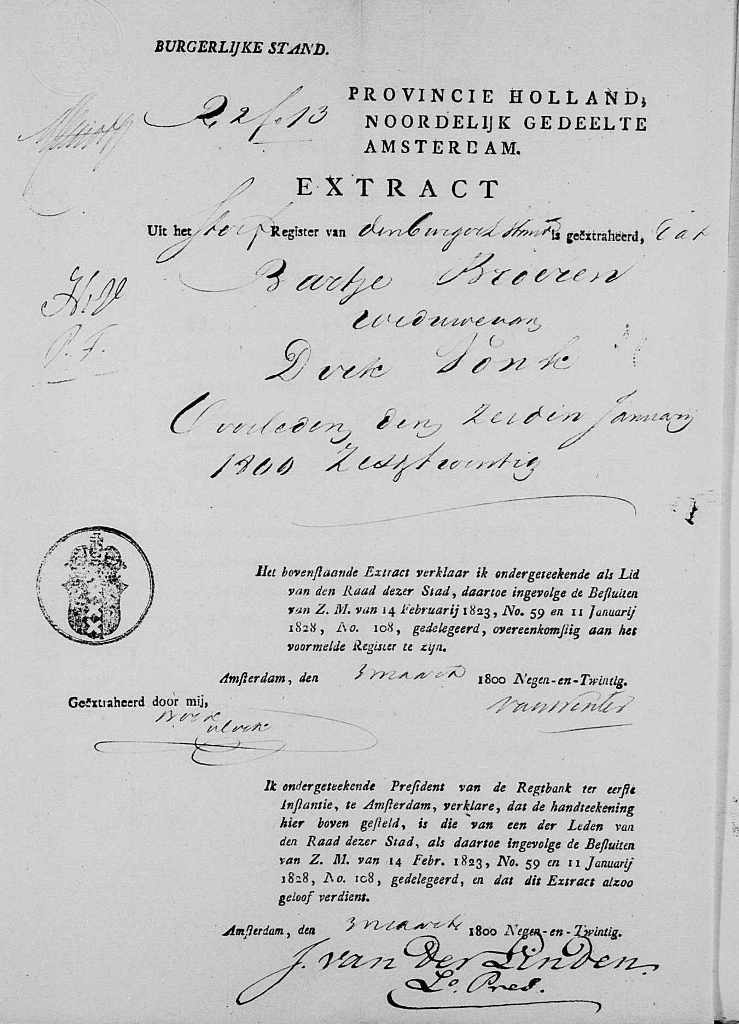 BURGERLIJKE STAND.
R 2 fo 13
PROVINCIE HOLLAND,
NOORDELIJK GEDEELTE
AMSTERDAM.
EXTRACT
Uit het Sterf Register van den burgerl Stand is geëxtraheerd, dat
Bartje Broeren
weduwe van
Dirk Vonk
Overleden den Januarij
1800 Zesztwintig
Het bovenstaande Extract verklaar ik ondergeteekende als Lid
van den Raad dezer Stad, daartoe ingevolge de Besluiten
van Z. M. van 14 Februarij 1823, No. 59 en 11 Januarij
1828, No. 108, gedelegeerd, overeenkomstig aan het
voormelde Register te zijn.
Amsterdam, den 3 maart 1800 Negen-en-Twintig.
Geëxtraheerd door mij,
van Winter
Ik ondergeteekende President van de Regtbank ter eerste
Instantie, te Amsterdam, verklare, dat de handteekening
hier boven gesteld, is die van een der Leden van
den Raad dezer Stad, als daartoe ingevolge de Besluiten
van Z. M. van 14 Febr. 1823, No. 59 en 11 Januarij
1828, No. 108, gedelegeerd, en dat dit Extract alzoo
geloof verdient.
Amsterdam, den 3 maart 1800 Negen-en-Twintig.
J. van Der Linden.
Lo. Pres.